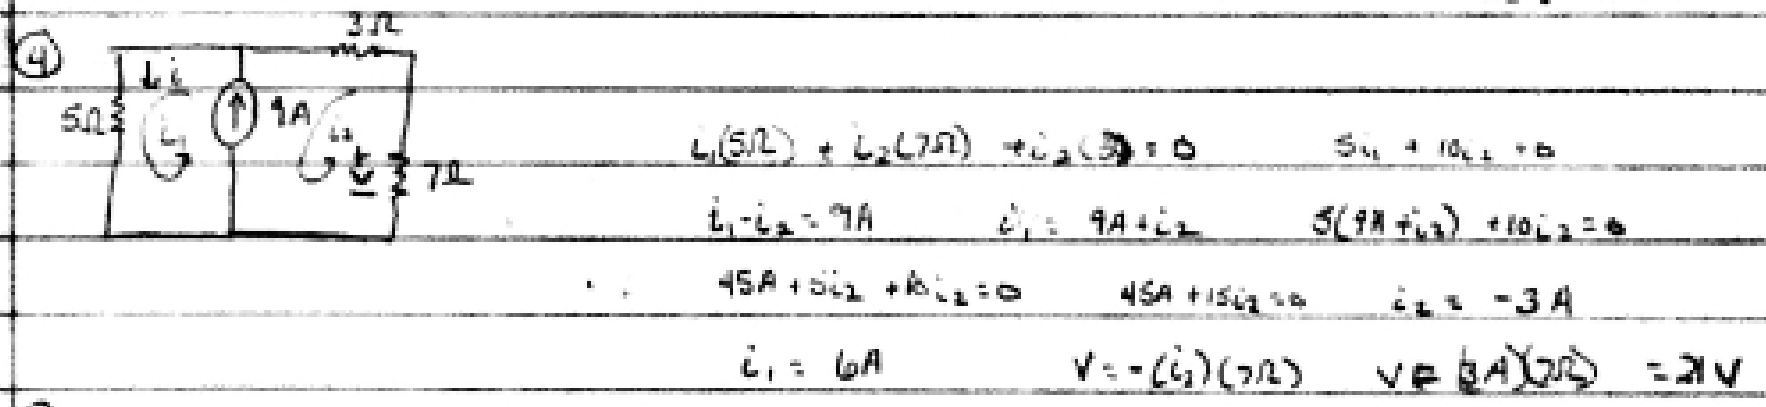 ④
3Ω
i
5Ω
i₁
9A
i₂
7Ω
i₁(5Ω) + i₂(7Ω) + i₂(3) = 0 5i₁ + 10i₂ = 0
i₁ - i₂ = 9A i₁ = 9A + i₂ 5(9A + i₂) + 10i₂ = 0
45A + 5i₂ + 10i₂ = 0 45A + 15i₂ = 0 i₂ = -3A
i₁ = 6A V = -(i₂)(7Ω) V = (3A)(7Ω) = 21V